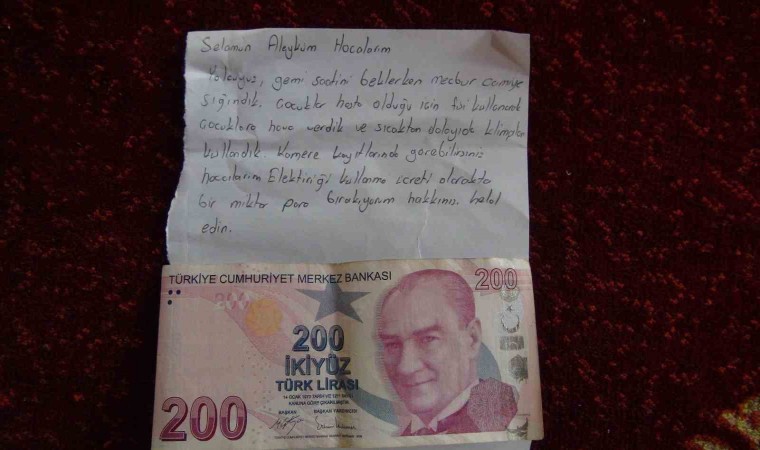 Selamun Aleyküm Hocalarım
Yolcuyuz, gemi saatini beklerken mecbur camiye
sığındık. Çocuklar hasta olduğu için fişi kullanarak
çocuklara hava verdik ve sıcaktan dolayıda klimaları
kullandık. Kamera kayıtlarında görebilirsiniz
hocalarım Elektiriği kullanma ücreti olarakta
bir miktar para bırakıyorum hakkınızı helal
edin.
TÜRKİYE CUMHURİYET MERKEZ BANKASI
200
200
İKİYÜZ
TÜRK LİRASI
14 OCAK 1970 TARİH VE 1211 SAYILI
KANUNA GÖRE ÇIKARILMIŞTIR
BAŞKAN BAŞKAN YARDIMCISI
200